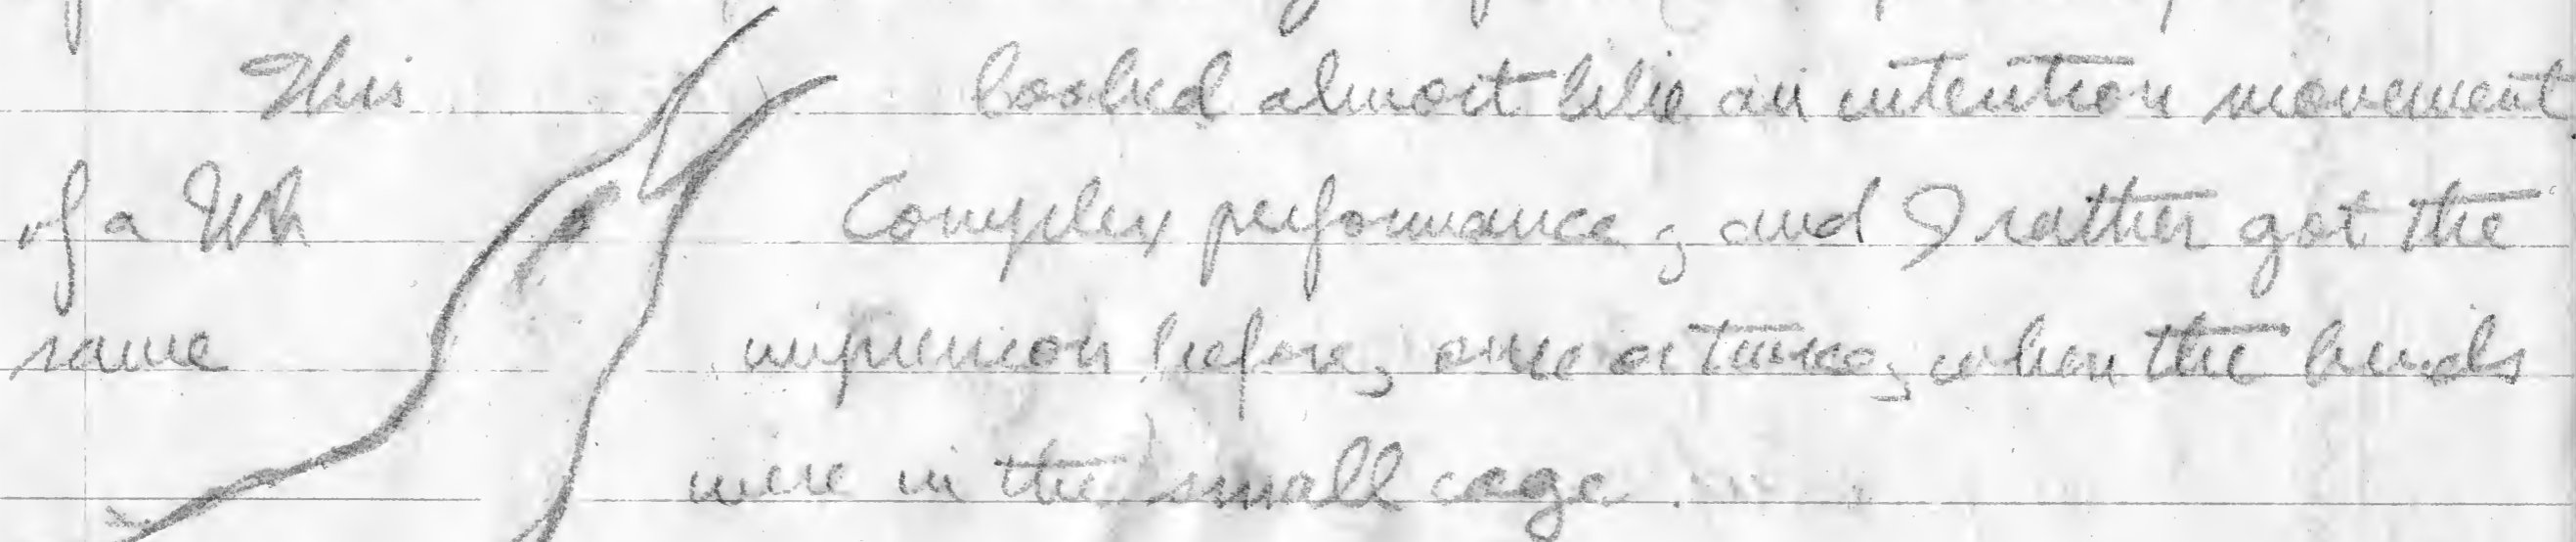 This looked almost like an intention movement
of a Wh Complex performance, and I rather got the
same impression before, once or twice, when the birds
were in the small cage.